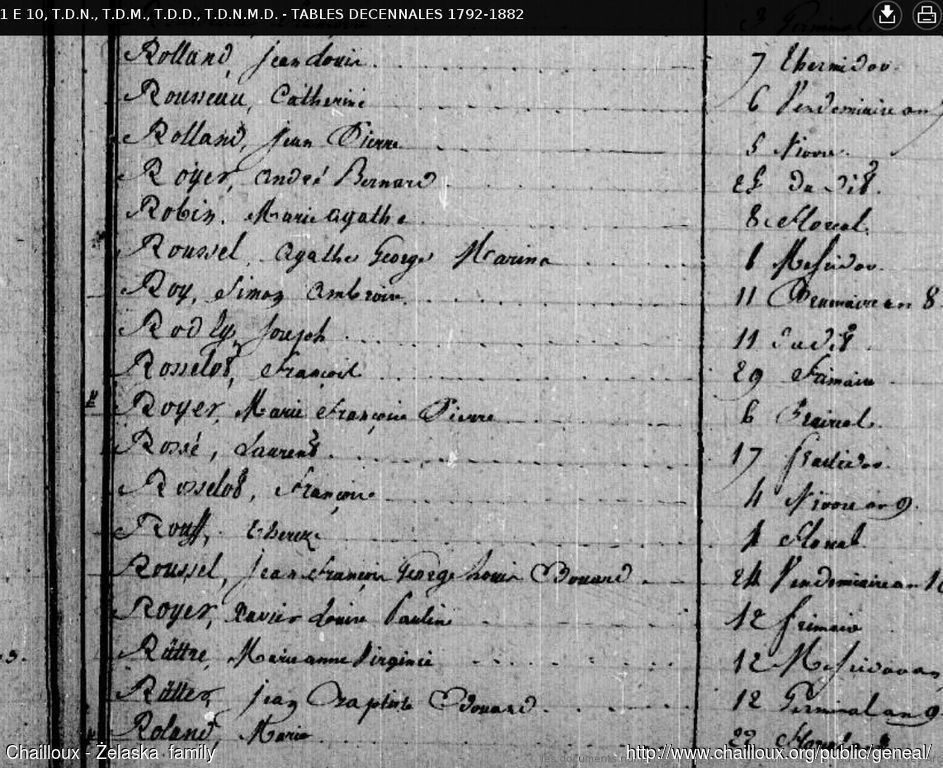 1 E 10, T.D.N., T.D.M., T.D.D., T.D.N.M.D. - TABLES DECENNALES 1792-1882
Rolland, jean Louis 7 thermidor
Rousseau, Catherine 6 Vendemiaire an
Rolland, jean Pierre 5 Nivose
Royer, andré Bernard 25 du dit
Robin, Marie agathe 8 floreal
Roussel, Agathe George Marina Messidor
Roy, Simon ambroise 11 Brumaire an 8
joseph 11 du dit
Rosselot, François 29 Frimaire
Royer, Marie Françoise Pierre 6 Prairial
Rossé, Laurent 17 fructidor
Rosselot, Françoise 4 Nivose an 9
Rouff, therese 1 floreal
Roussel, jean François George Louis Edouard 24 Vendemiaire an
Royer, Xavier Louise Pauline 12 frimaire
Rüttre, Marie anne Virginie 12 Messidor an
Rütter, jean Baptiste Edouard 12 Germinal an 9
Roland Marie 22
Chailloux - Żelaska family
http://www.chailloux.org/public/geneal/